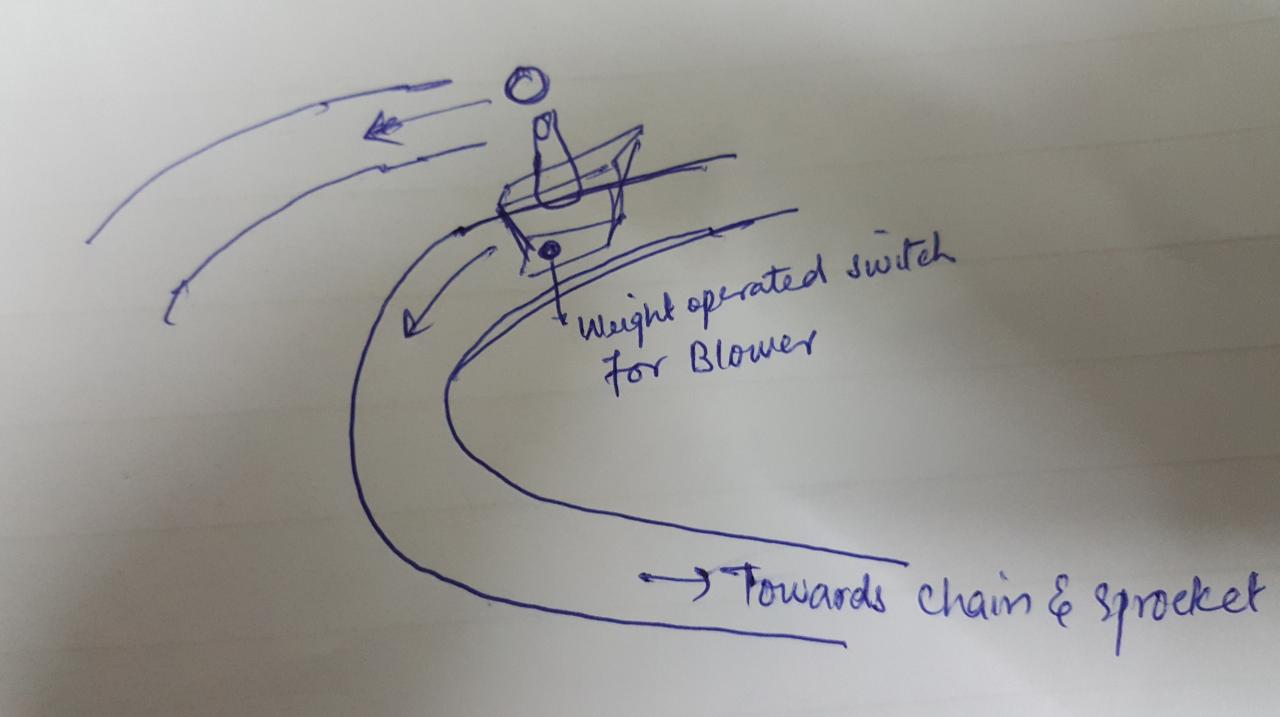 Weight operated switch
For Blower
Towards chain & sprocket